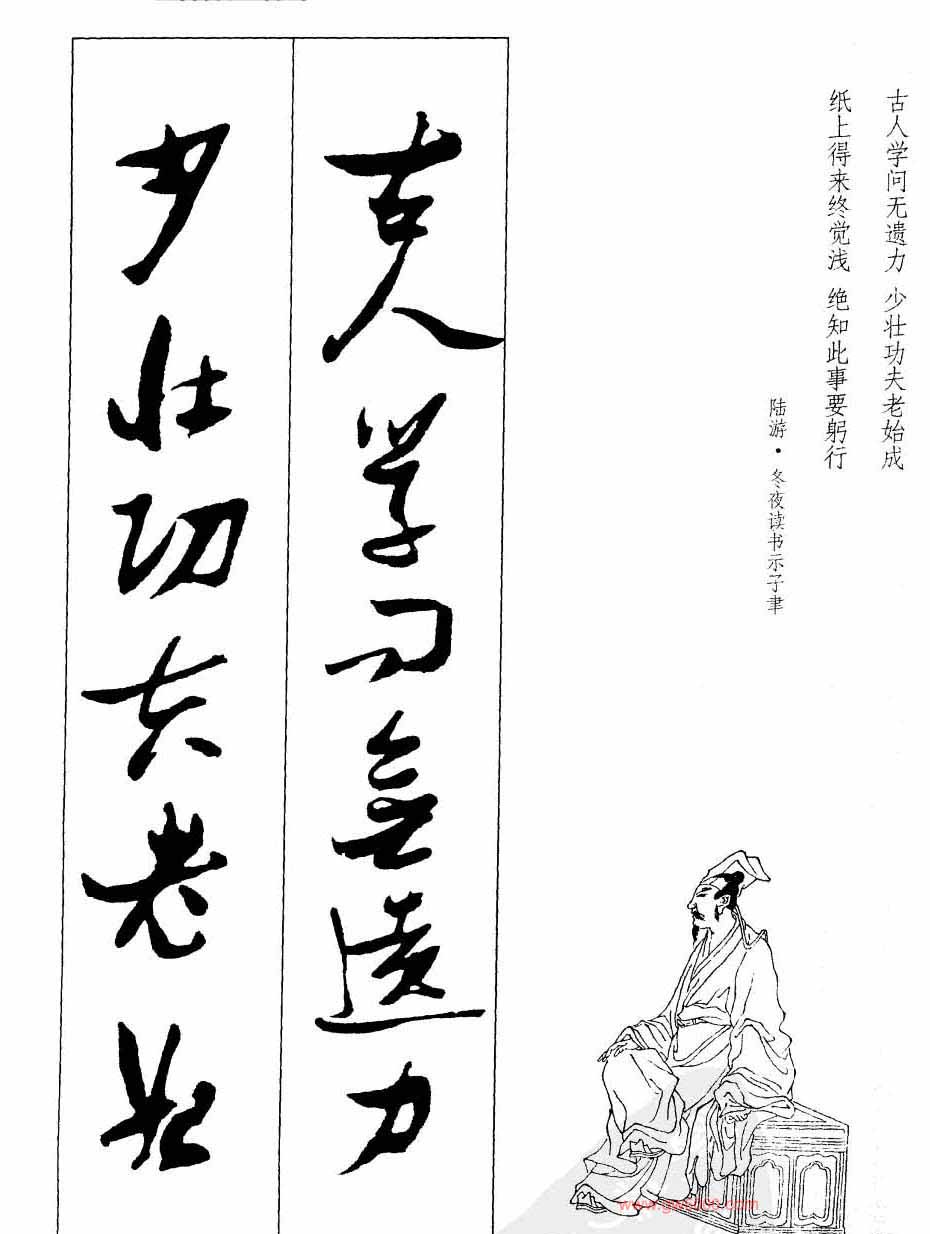 古人学问无遗力 少壮功夫老始成
纸上得来终觉浅 绝知此事要躬行
陆游·冬夜读书示子聿
古人学问無遗力
少壮功夫老始